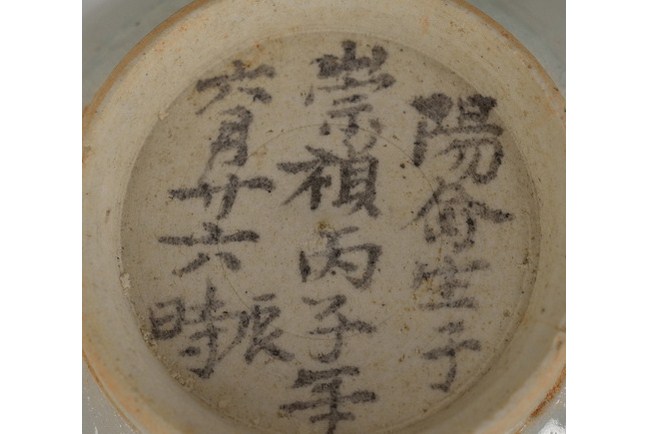 陽侖生于
崇禎丙子年
六月廿六辰時